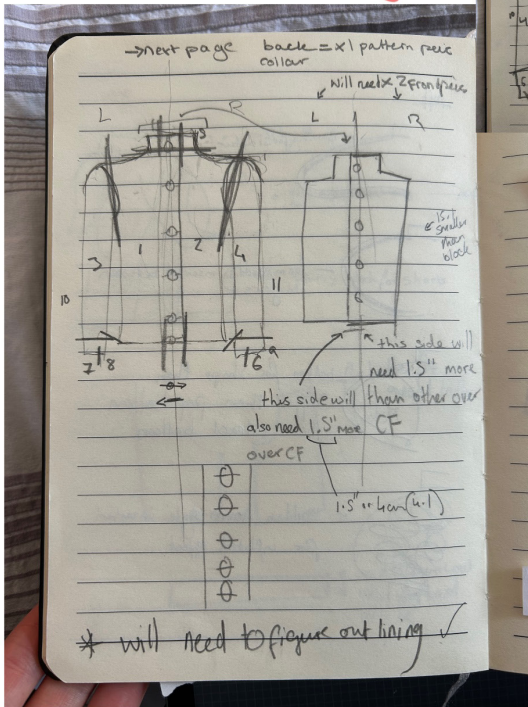 →next page back = x1 pattern piece
collar
will need x 2 front pieces
L R L R
3 1 2 4
10 11
7 8 6 9
is smaller than block
this side will
need 1.5" more
than other over
CF
this side will
also need 1.5" more
over CF
1.5" or 4cm (4.1)
* will need to figure out lining ✓